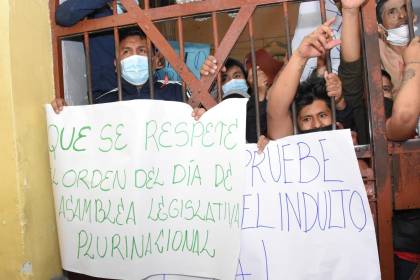 QUE SE RESPETE
EL ORDEN DEL DÍA DE
ASAMBLEA LEGISLATIVA
PLURINACIONAL
PRUEBE
EL INDULTO